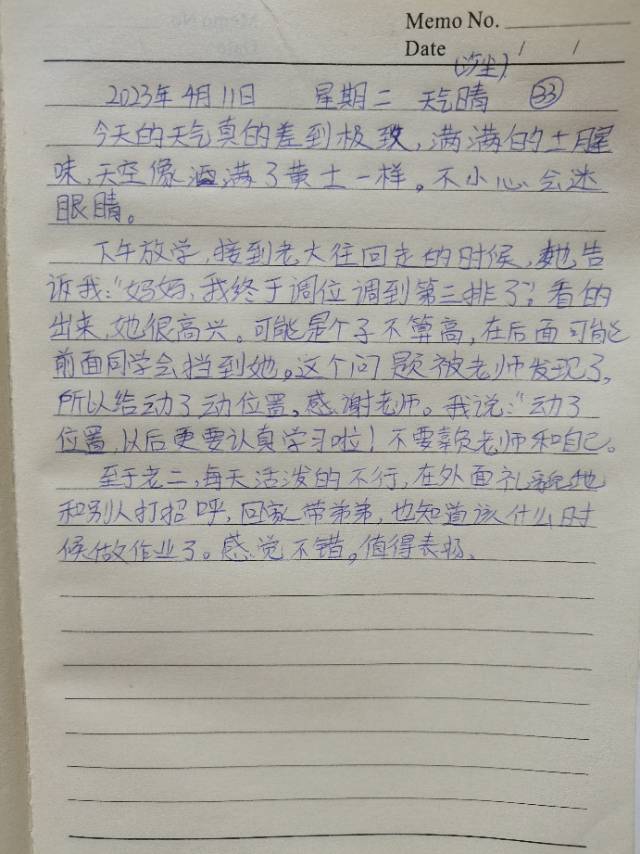 Memo No.
Date / /
(沙尘)
2023年4月11日 星期二 天气晴 33
今天的天气真的差到极致,满满的土腥
味,天空像洒满了黄土一样。不小心会迷
眼睛。
下午放学,接到老大往回走的时候,她告
诉我:“妈妈,我终于调位调到第三排了”;看的
出来,她很高兴。可能是个子不算高,在后面可能
前面同学会挡到她。这个问题被老师发现了,
所以给动了动位置。感谢老师。我说:“动了
位置,以后更要认真学习啦!不要辜负老师和自己。
至于老二,每天活泼的不行,在外面礼貌地
和别人打招呼,回家带弟弟,也知道该什么时
候做作业了。感觉不错。值得表扬、